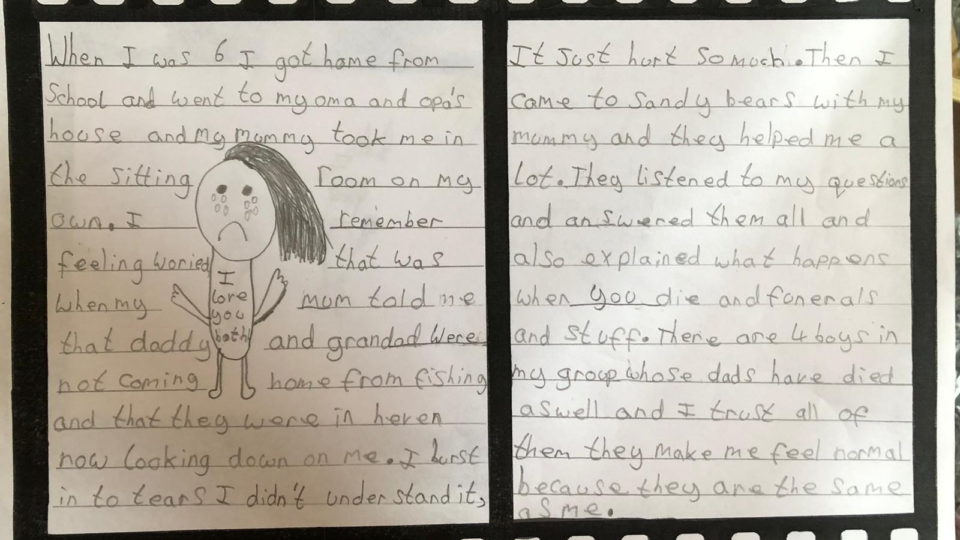 When I was 6 I got home from
School and went to my oma and opa's
house and my mummy took me in
the sitting room on my
own. I remember
feeling woried that was
when my mum told me
that daddy and grandad were
not coming home from fishing
and that they were in heven
now looking down on me. I burst
in to tears I didn't understand it,
I love you both
It just hurt so much. Then I
came to Sandy bears with my
mummy and they helped me a
lot. They listened to my questions
and answered them all and
also explained what happens
when you die and funerals
and stuff. There are 4 boys in
my group whose dads have died
aswell and I trust all of
them they make me feel normal
because they are the same
as me.